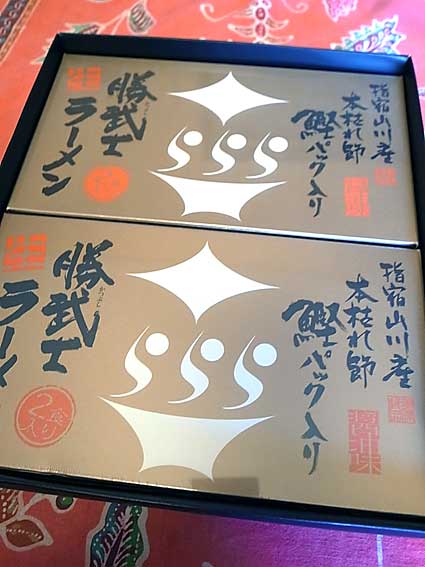 指宿山川産
本枯れ節
鰹パック入り
勝武士
ラーメン
指宿山川産
本枯れ節
鰹パック入り
醤油味
勝武士
かつぶし
ラーメン
2食入り